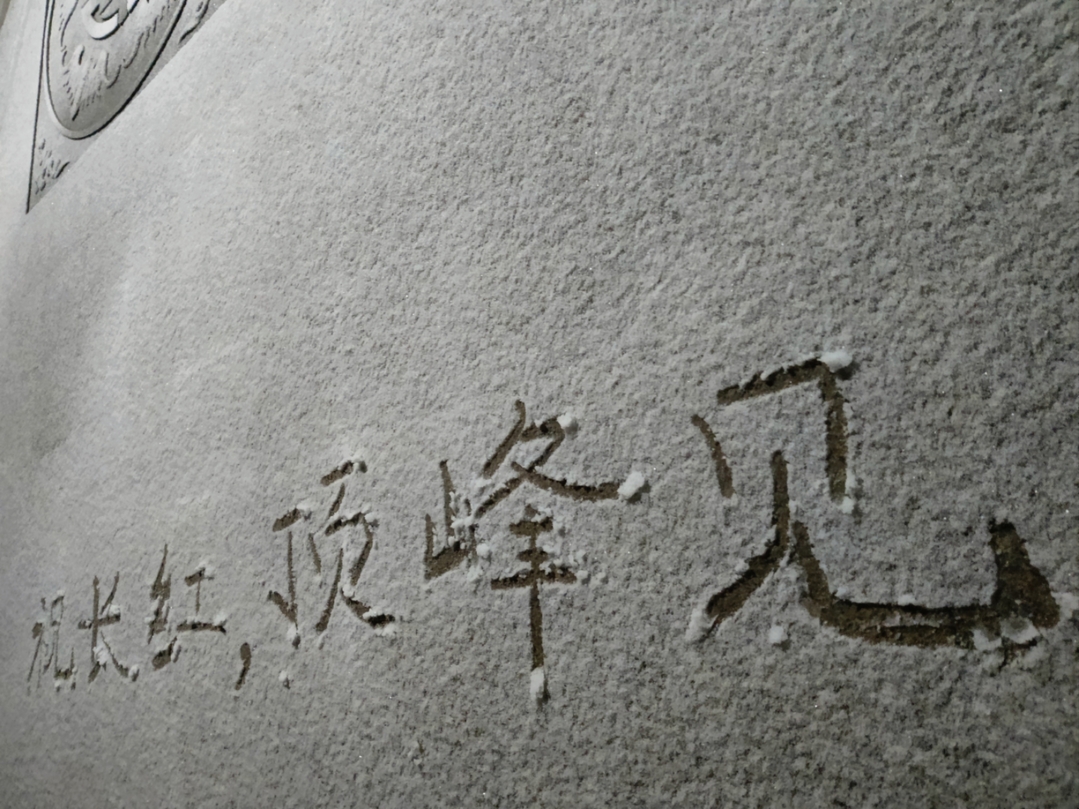 祝长红，顶峰见